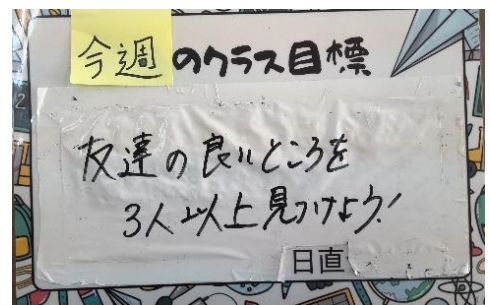 今週のクラス目標
友達の良いところを
3人以上見つけよう!
日直